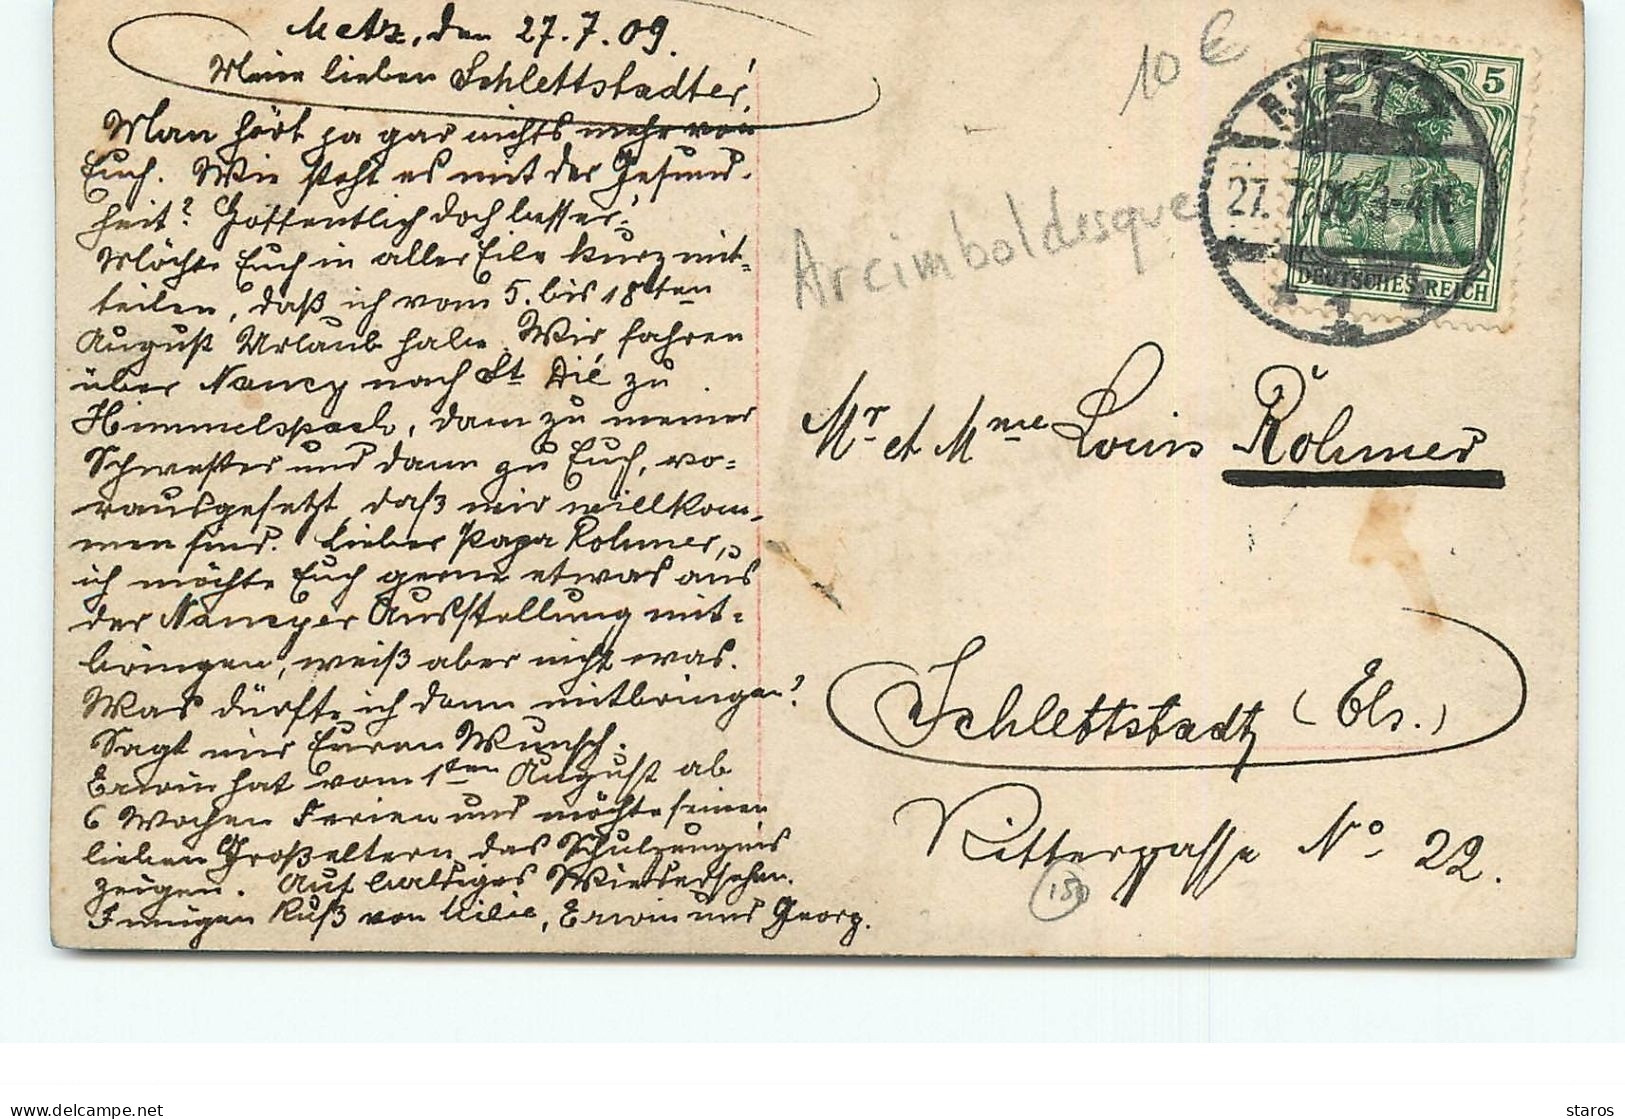 Metz, den 27.7.09.
Meine lieben Schlettstadter!
Man hört ja gar nichts mehr von
Euch. Wie steht es mit der Gesund-
heit? Hoffentlich doch besser?
Möchte Euch in aller Eile kurz mit-
teilen, daß ich vom 5. bis 18ten
August Urlaub habe. Wir fahren
über Nancy nach St Dié zu
Himmelspach, dann zu meiner
Schwester und dann zu Euch, vo-
rausgesetzt daß wir willkom-
men sind. Lieber Papa Rohmer,
ich möchte Euch gerne etwas aus
der Nancyer Ausstellung mit-
bringen, weiß aber nicht was.
Was dürfte ich denn mitbringen?
Sagt mir Euren Wunsch.
Erwin hat vom 1ten August ab
6 Wochen Ferien und möchte seinen
lieben Großeltern das Schulzeugnis
zeigen. Auf baldiges Wiedersehen.
Innigen Kuß von Lilie, Erwin und Georg.
10 €
Arcimboldesque
METZ
27.7.09.3-4N
1
5
DEUTSCHES REICH
Mr et Mme Louis Rohmer
Schlettstadt (Els.)
Rittergasse No 22.
150
www.delcampe.net
staros